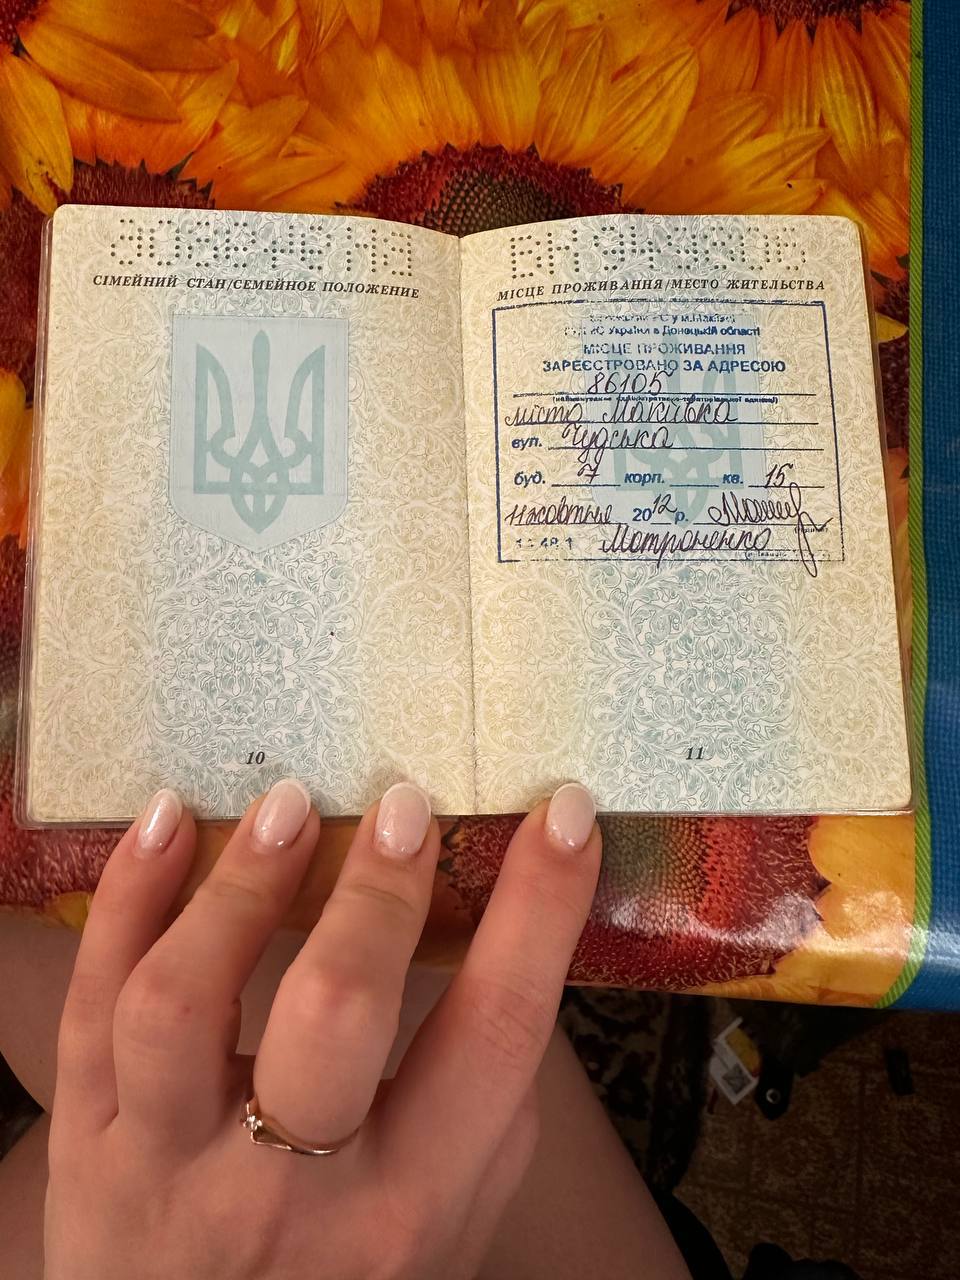 СІМЕЙНИЙ СТАН/СЕМЕЙНОЕ ПОЛОЖЕНИЕ
10
МІСЦЕ ПРОЖИВАННЯ/МЕСТО ЖИТЕЛЬСТВА
РС у м.Макіївці
України в Донецькій області
МІСЦЕ ПРОЖИВАННЯ
ЗАРЕЄСТРОВАНО ЗА АДРЕСОЮ
86105
(найменування адміністративно-територіальної одиниці)
місто Макіївка
вул. Чудська
буд. 7 корп. кв. 15
жовтня 2012 р.
Мотроненко
11